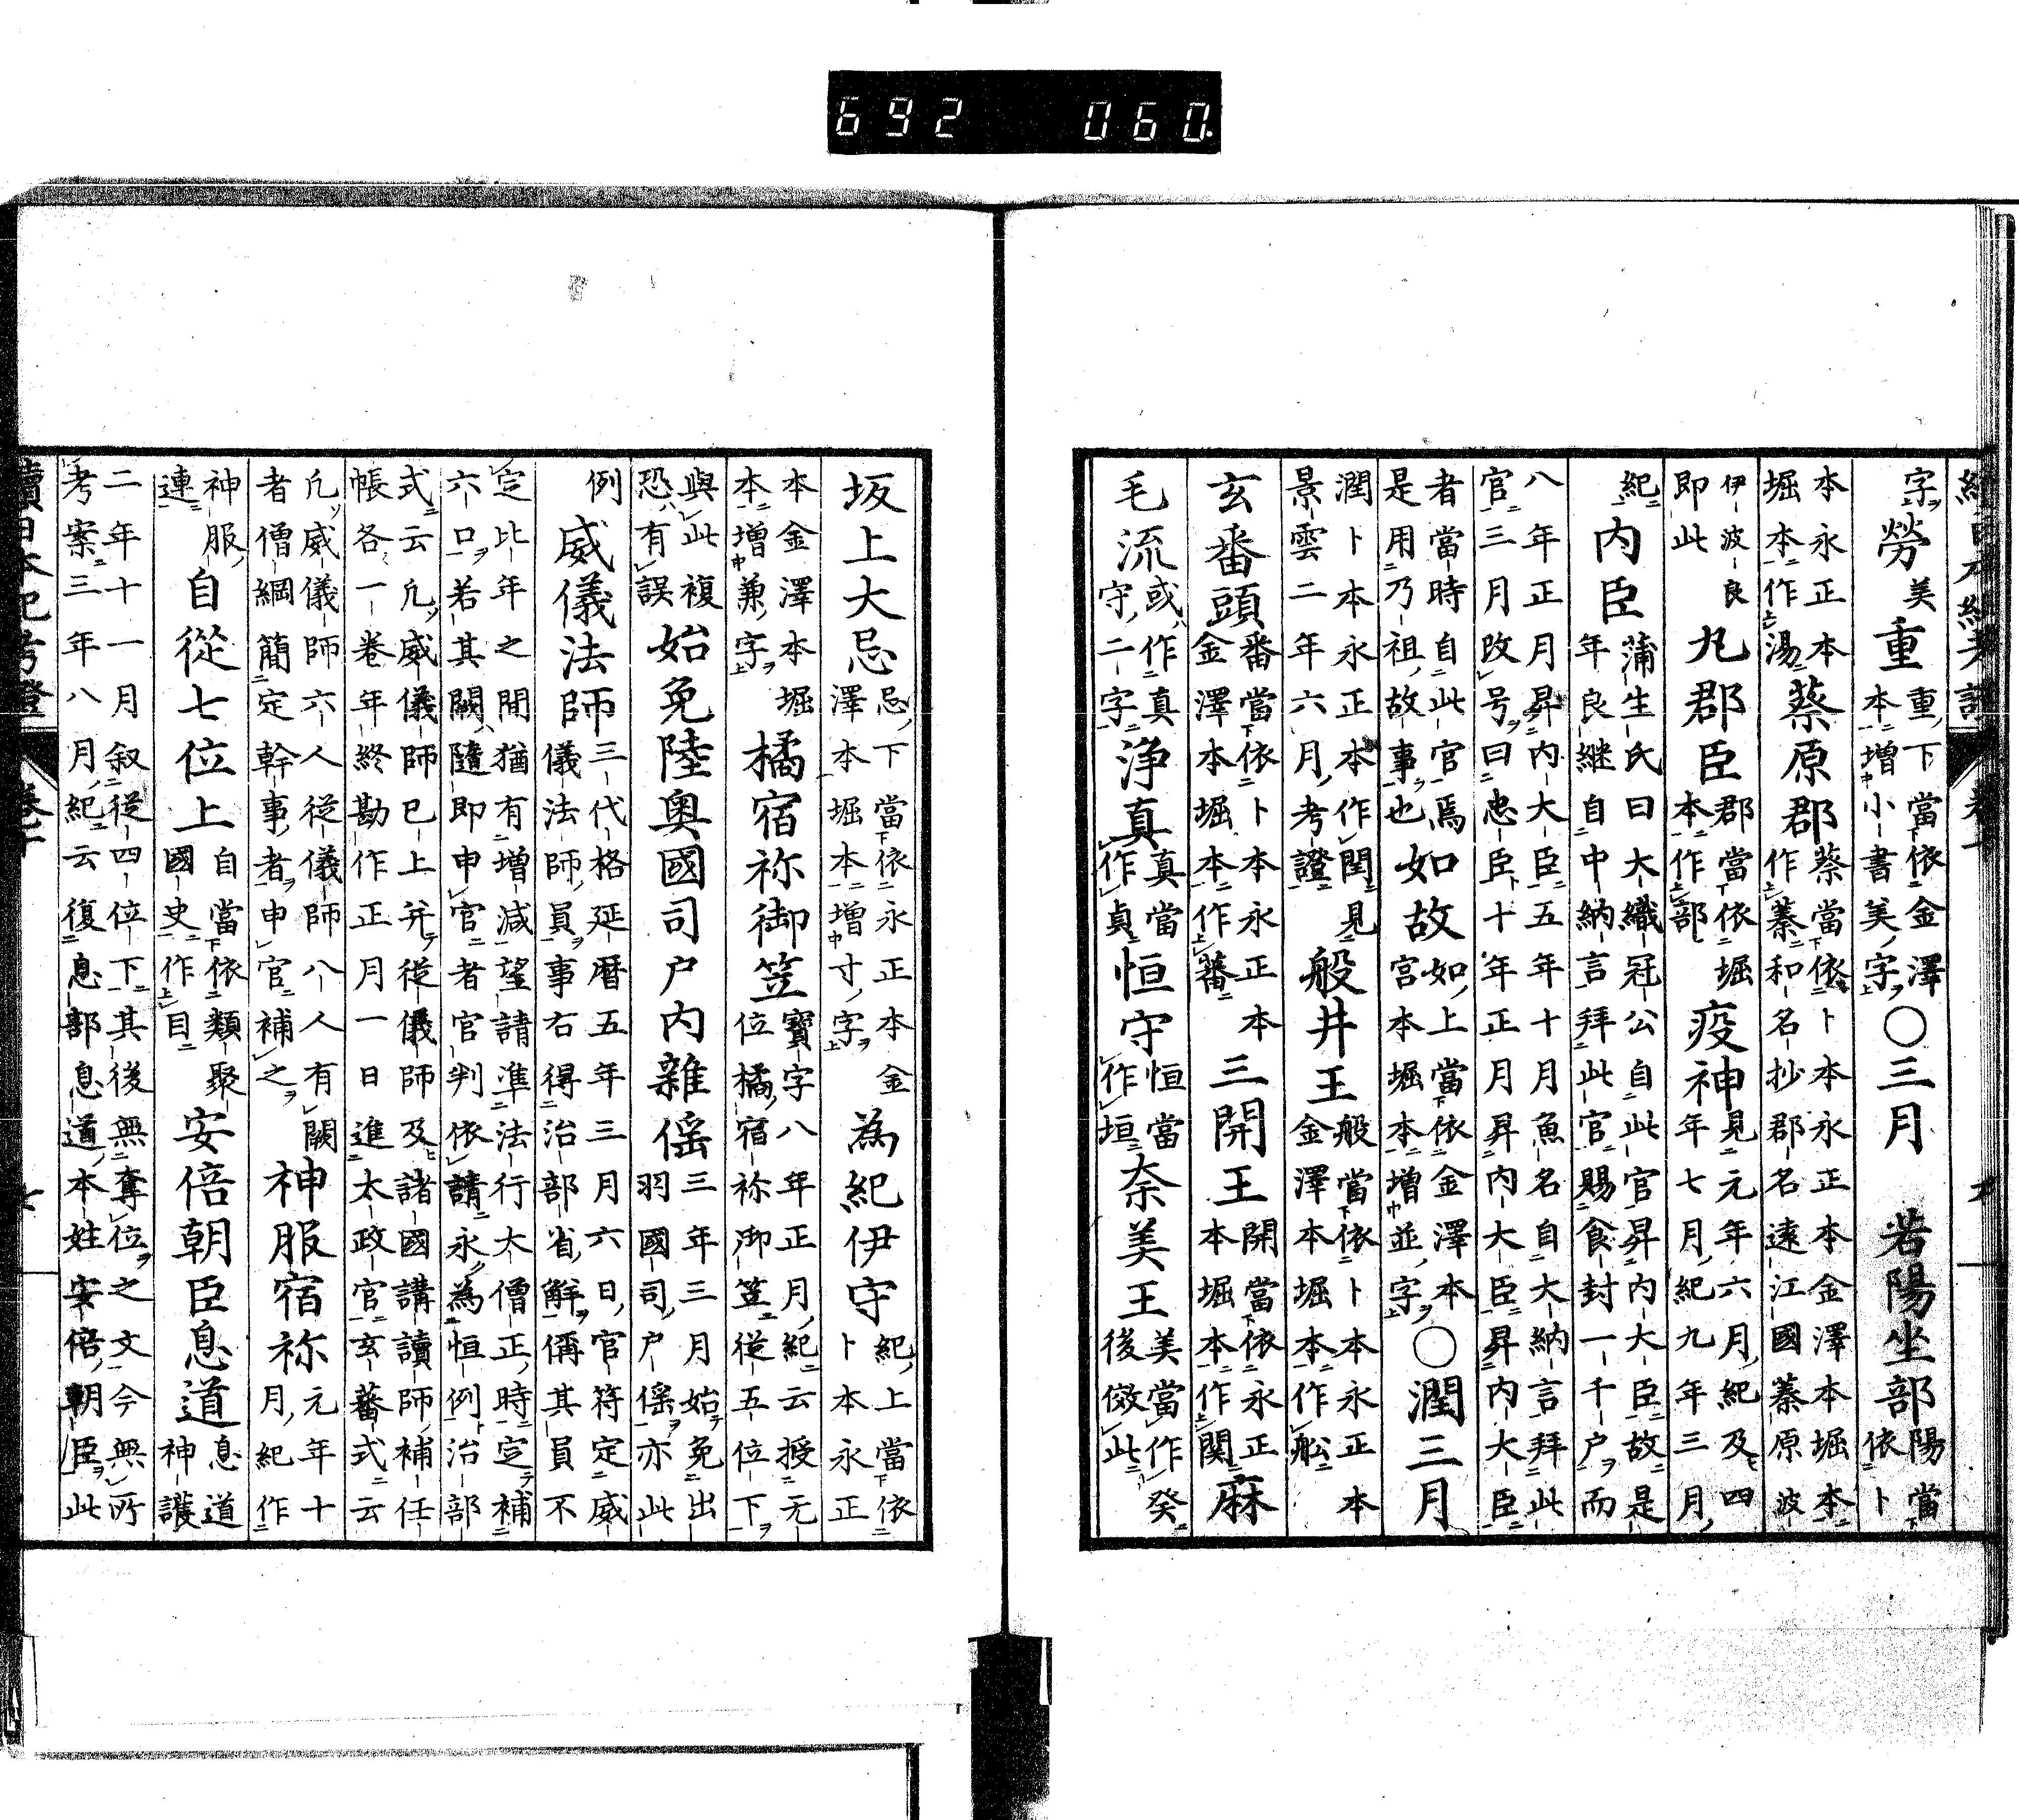 692 060.
字勞美重重下當依金澤本增小書美字〇三月 若陽坐部陽當依卜
本永正本堀本作湯蓁原郡蓁當依卜本永正本金澤本堀本作蓁和名抄郡名遠江國蓁原波
伊波良即此九郡臣郡當依堀本作部疫神見元年六月紀及四年七月紀九年三月
紀內臣蒲生氏曰大織冠公自此官昇內大臣故是年良継自中納言拜此官賜食封一千户而
八年正月昇內大臣五年十月魚名自大納言拜此官三月改号曰忠臣十年正月昇內大臣昇內大臣
者當時自此官焉是用乃祖故事也如故如上當依金澤本宮本堀本增並字〇潤三月
潤卜本永正本作閏見景雲二年六月考證般井王般當依卜本永正本金澤本堀本作舩
玄番頭番當依卜本永正本金澤本堀本作蕃三開王開當依永正本堀本作関麻
毛流或作真守二字淨真真當作貞恒守恒當作垣奈美王美當作癸後倣此
坂上大忌忌下當依永正本金澤本堀本增寸字為紀伊守紀上當依卜本永正
本金澤本堀本增兼字橘宿祢御笠寶字八年正月紀云授无位橘宿祢御笠從五位下
與此複恐有誤始免陸奧國司户內雜徭三年三月始免出羽國司户徭亦此
例威儀法師三代格延曆五年三月六日官符定威儀法師員事右得治部省解偁其員不
定比年之間猶有增減望請準法行大僧正時定補六口若其闕隨即申官者官判依請永為恒例治部
式云凡威儀師已上并從儀師及諸國講讀師補任帳各一卷年終勘作正月一日進太政官玄蕃式云
凡威儀師六人從儀師八人有闕者僧綱簡定幹事者申官補之神服宿祢元年十月紀作
神服連自從七位上自當依類聚國史作目安倍朝臣息道息道神護
二年十一月叙從四位下其後無奪位之文今無所考案三年八月紀云復息部息道本姓安倍朝臣此